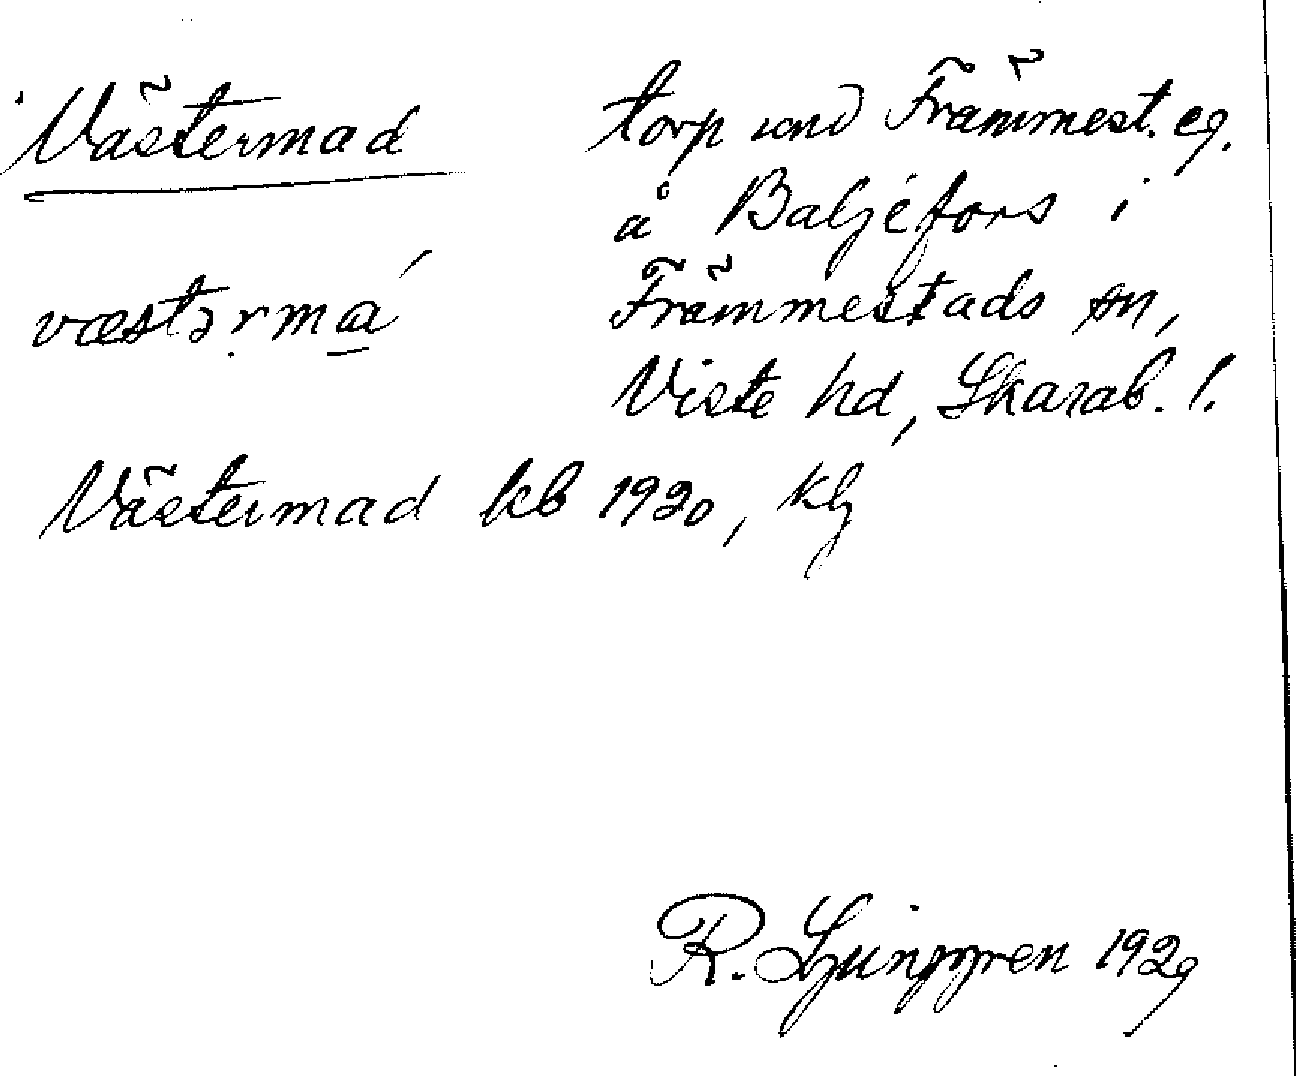 Västermad
væstərmá
torp und Främmest. eg.
å Baljefors i
Främmestads sn,
Viste hd, Skarab. l.
Västermad kb 1920, klj
R. Ljunggren 1929